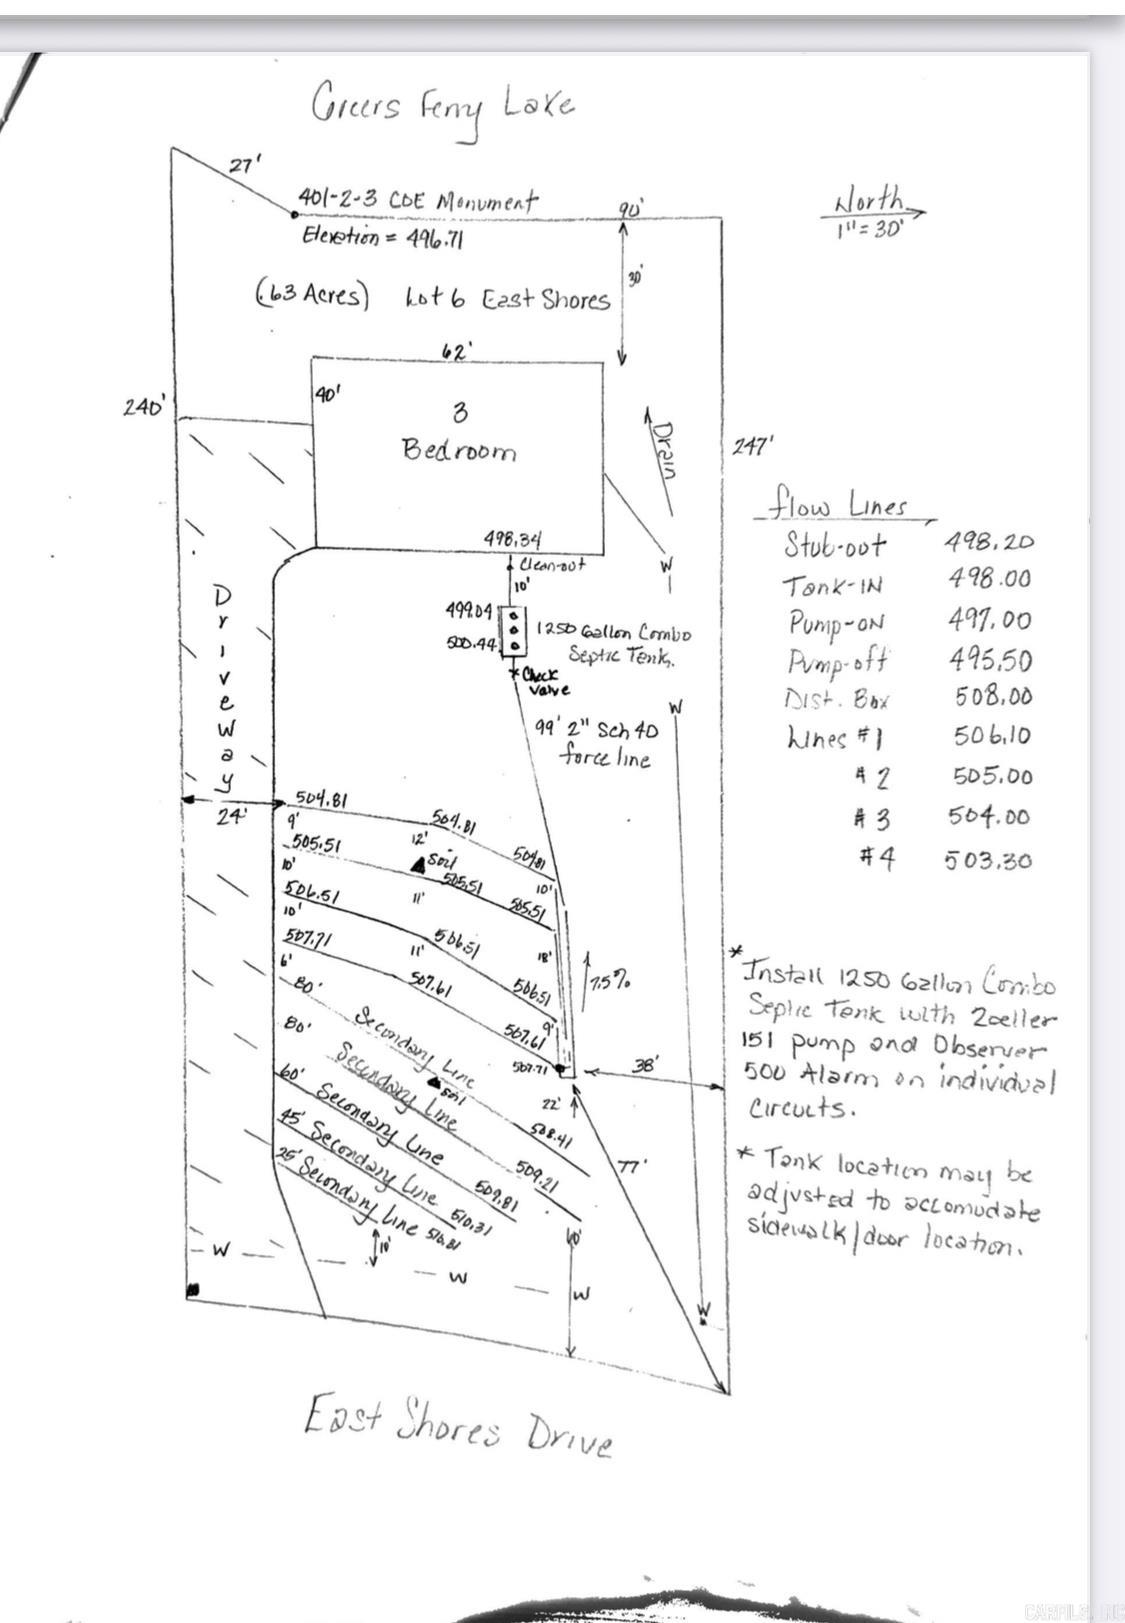 Greers Ferry Lake
27'
401-2-3 COE Monument
90'
Elevation = 496.71
North
1" = 30'
30'
(.63 Acres) Lot 6 East Shores
62'
40'
240'
3
Bedroom
Drain
247'
498.34
Clean-out
10'
W
499.04
500.44
1250 Gallon Combo
Septic Tank.
Check
valve
W
99' 2" Sch 40
force line
Driveway
24'
flow Lines
Stub-out 498.20
Tank-IN 498.00
Pump-ON 497.00
Pump-off 495.50
Dist. Box 508.00
Lines #1 506.10
#2 505.00
#3 504.00
#4 503.30
504.81
504.81
504.81
9'
12'
10'
505.51
Soil
505.51
505.51
10'
11'
18'
506.51
506.51
506.51
10'
11'
9'
507.71
507.61
507.61
6'
507.71
7.5%
38'
22'
77'
80' Secondary Line 508.41
80' Secondary Line 509.21
Soil
60' Secondary Line 509.81
45' Secondary Line 510.31
25' Secondary Line 510.81
10'
60'
W
W
W
W
* Install 1250 Gallon Combo
Septic Tank with Zoeller
151 pump and Observer
500 Alarm on individual
circuits.
* Tank location may be
adjusted to accomodate
sidewalk/door location.
East Shores Drive